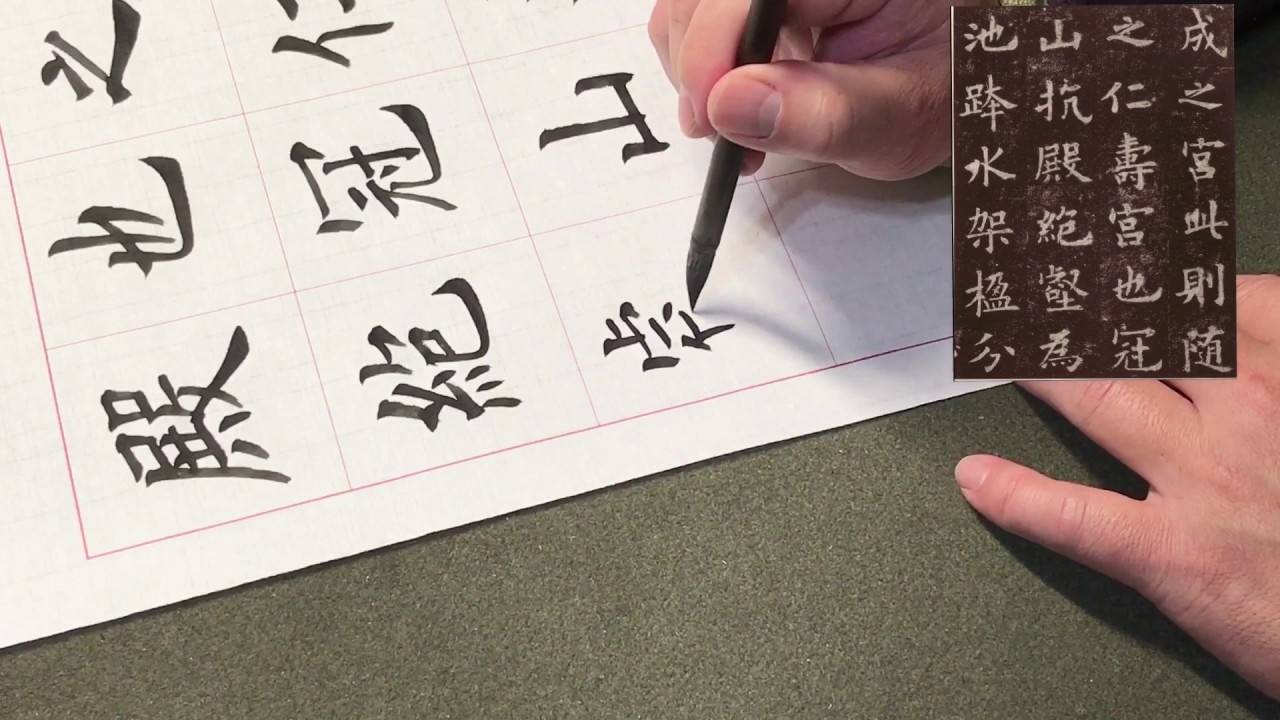 成之宮此則随
之仁壽宮也冠
山抗殿絶壑為
池跨水架楹分
之仁
也冠山
殿絶